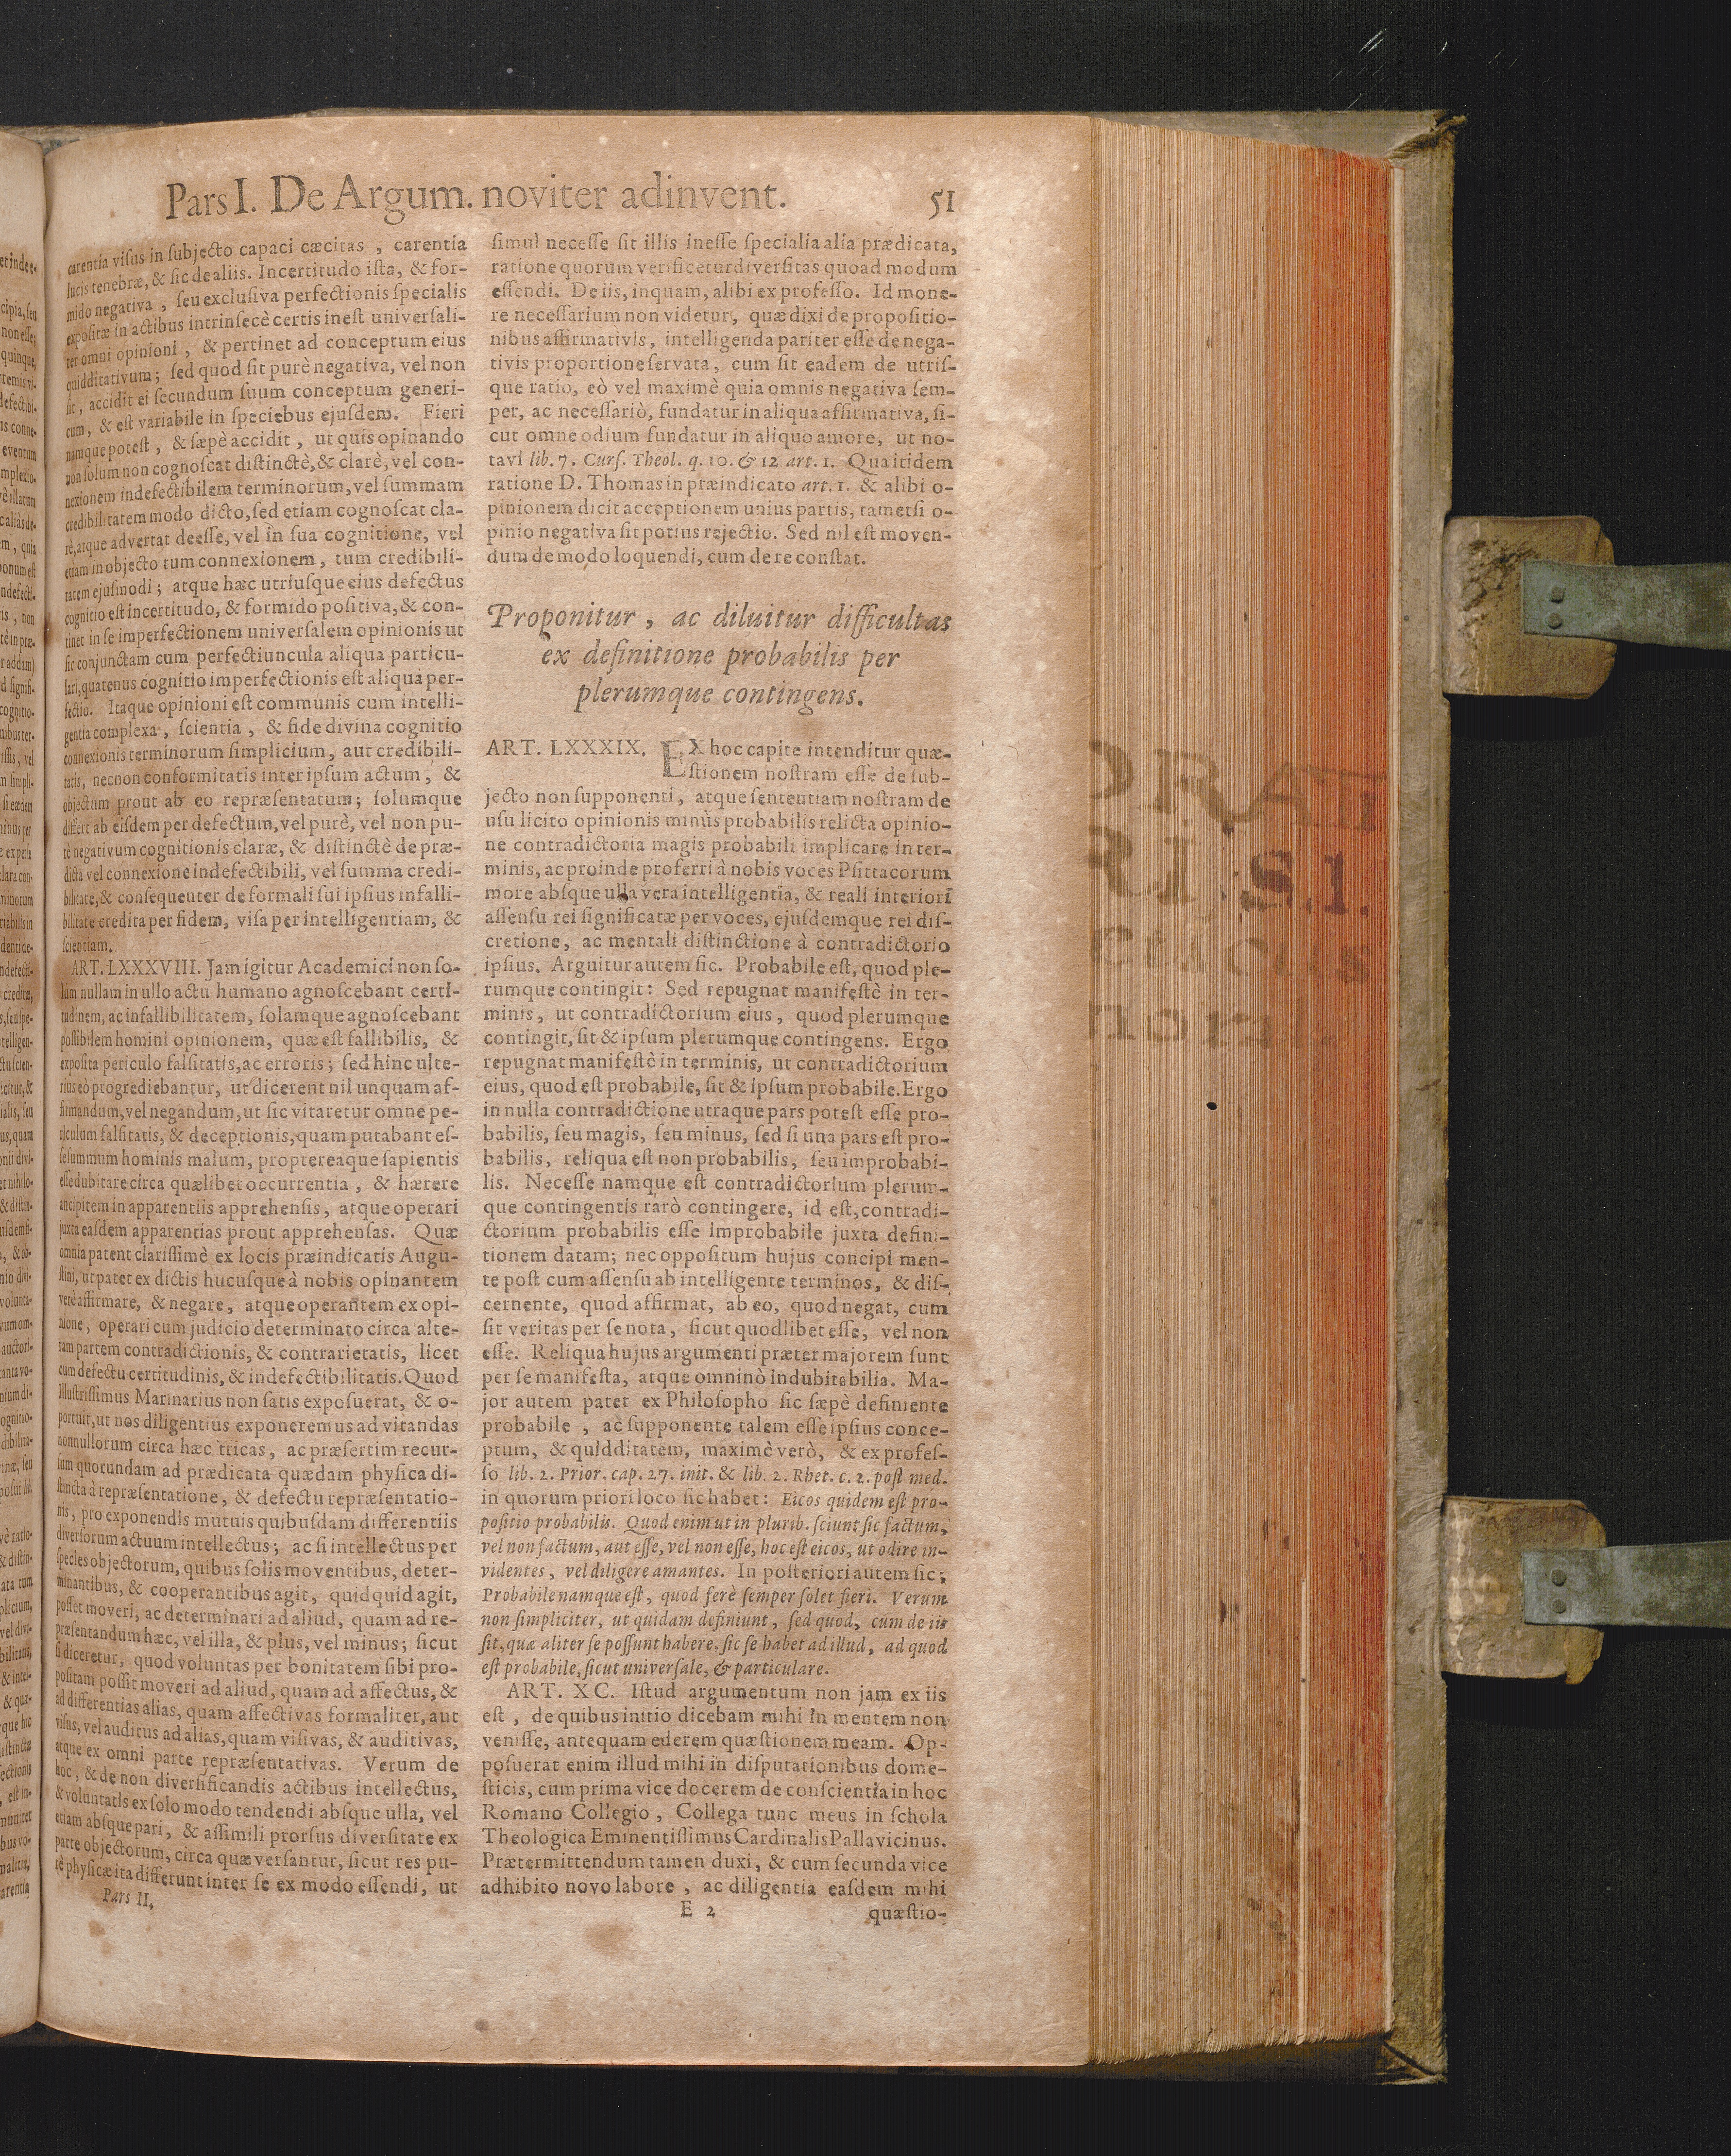 Pars I. De Argum. noviter adinvent.
51
carentia visus in subjecto capaci cæcitas , carentia
lucis tenebræ, & sic de aliis. Incertitudo ista, & for-
mido negativa , seu exclusiva perfectionis specialis
expositæ in actibus intrinsecè certis inest universali-
ter omni opinioni , & pertinet ad conceptum eius
quidditativum; sed quod sit purè negativa, vel non
sit , accidit ei secundum suum conceptum generi-
cum , & est variabile in speciebus ejusdem. Fieri
namque potest , & sæpè accidit , ut quis opinando
non solum non cognoscat distinctè, & clarè, vel con-
nexionem indefectibilem terminorum, vel summam
credibilitatem modo dicto, sed etiam cognoscat cla-
rè, atque advertat deesse, vel in sua cognitione, vel
etiam in objecto tum connexionem , tum credibili-
tatem ejusmodi ; atque hæc utriusque eius defectus
cognitio est incertitudo, & formido positiva, & con-
tinet in se imperfectionem universalem opinionis ut
sic conjunctam cum perfectiuncula aliqua particu-
lari, quatenus cognitio imperfectionis est aliqua per-
fectio. Itaque opinioni est communis cum intelli-
gentia complexa , scientia , & fide divina cognitio
connexionis terminorum simplicium, aut credibili-
tatis, necnon conformitatis inter ipsum actum , &
objectum prout ab eo repræsentatum; solumque
differt ab eisdem per defectum, vel purè, vel non pu-
rè negativum cognitionis claræ, & distinctè de præ-
dicta vel connexione indefectibili, vel summa credi-
bilitate, & consequenter de formali sui ipsius infalli-
bilitate credita per fidem, visa per intelligentiam, &
scientiam.
ART. LXXXVIII. Jam igitur Academici non so-
lum nullam in ullo actu humano agnoscebant certi-
tudinem, ac infallibilitatem, solamque agnoscebant
possibilem homini opinionem, quæ est fallibilis, &
exposita periculo falsitatis, ac erroris; sed hinc ulte-
rius eò progrediebantur, ut dicerent nil unquam af-
firmandum, vel negandum, ut sic vitaretur omne pe-
riculum falsitatis, & deceptionis, quam putabant es-
se summum hominis malum, proptereaque sapientis
esse dubitare circa quælibet occurrentia , & hærere
ancipitem in apparentiis apprehensis, atque operari
juxta easdem apparentias prout apprehensas. Quæ
omnia patent clarissimè ex locis præindicatis Augu-
stini, ut patet ex dictis hucusque à nobis opinantem
verè affirmare, & negare, atque operantem ex opi-
nione , operari cum judicio determinato circa alte-
ram partem contradictionis, & contrarietatis, licet
cum defectu certitudinis, & indefectibilitatis. Quod
Illustrissimus Marinarius non satis exposuerat, & o-
portuit, ut nos diligentius exponeremus ad vitandas
nonnullorum circa hæc tricas, ac præsertim recur-
sum quorundam ad prædicata quædam physica di-
stincta à repræsentatione, & defectu repræsentatio-
nis, pro exponendis mutuis quibusdam differentiis
diversorum actuum intellectus; ac si intellectus per
species objectorum, quibus solis moventibus, deter-
minantibus, & cooperantibus agit, quidquid agit,
posset moveri, ac determinari ad aliud, quam ad re-
præsentandum hæc, vel illa, & plus, vel minus; sicut
si diceretur, quod voluntas per bonitatem sibi pro-
positam possit moveri ad aliud, quam ad affectus, &
ad differentias alias, quam affectivas formaliter, aut
visus, vel auditus ad alias, quam visivas, & auditivas,
atque ex omni parte repræsentativas. Verum de
hoc, & de non diversificandis actibus intellectus,
& voluntatis ex solo modo tendendi absque ulla, vel
etiam absque pari, & assimili prorsus diversitate ex
parte objectorum, circa quæ versantur, sicut res pu-
rè physicæ ita differunt inter se ex modo essendi, ut
Pars II.
simul necesse sit illis inesse specialia alia prædicata,
ratione quorum verificetur diversitas quoad modum
essendi. De iis, inquam, alibi ex professo. Id mone-
re necessarium non videtur, quæ dixi de propositio-
nibus affirmativis, intelligenda pariter esse de nega-
tivis proportione servata, cum sit eadem de utris-
que ratio, eò vel maximè quia omnis negativa sem-
per, ac necessariò, fundatur in aliqua affirmativa, si-
cut omne odium fundatur in aliquo amore, ut no-
tavi lib. 7. Curs. Theol. q. 10. & 12 art. 1. Qua itidem
ratione D. Thomas in præindicato art. 1. & alibi o-
pinionem dicit acceptionem unius partis, tametsi o-
pinio negativa sit potius rejectio. Sed nil est moven-
dum de modo loquendi, cum de re constat.
Proponitur , ac diluitur difficultas
ex definitione probabilis per
plerumque contingens.
ART. LXXXIX. EX hoc capite intenditur quæ-
stionem nostram esse de sub-
jecto non supponenti, atque sententiam nostram de
usu licito opinionis minùs probabilis relicta opinio-
ne contradictoria magis probabili implicare in ter-
minis, ac proinde proferri à nobis voces Psittacorum
more absque ulla vera intelligentia, & reali interiori
assensu rei significatæ per voces, ejusdemque rei dis-
cretione, ac mentali distinctione à contradictorio
ipsius. Arguitur autem sic. Probabile est, quod ple-
rumque contingit: Sed repugnat manifestè in ter-
minis, ut contradictorium eius, quod plerumque
contingit, sit & ipsum plerumque contingens. Ergo
repugnat manifestè in terminis, ut contradictorium
eius, quod est probabile, sit & ipsum probabile. Ergo
in nulla contradictione utraque pars potest esse pro-
babilis, seu magis, seu minus, sed si una pars est pro-
babilis, reliqua est non probabilis, seu improbabi-
lis. Necesse namque est contradictorium plerum-
que contingentis rarò contingere, id est, contradi-
ctorium probabilis esse improbabile juxta defini-
tionem datam; nec oppositum hujus concipi men-
te post cum assensu ab intelligente terminos, & dis-
cernente, quod affirmat, ab eo, quod negat, cum
sit veritas per se nota, sicut quodlibet esse, vel non
esse. Reliqua hujus argumenti præter majorem sunt
per se manifesta, atque omninò indubitabilia. Ma-
jor autem patet ex Philosopho sic sæpè definiente
probabile , ac supponente talem esse ipsius conce-
ptum, & quidditatem, maximè verò, & ex profes-
so lib. 2. Prior. cap. 27. init. & lib. 2. Rhet. c. 2. post med.
in quorum priori loco sic habet: Eicos quidem est pro-
positio probabilis. Quod enim ut in plurib. sciunt sic factum,
vel non factum, aut esse, vel non esse, hoc est eicos, ut odire in-
videntes, vel diligere amantes. In posteriori autem sic;
Probabile namque est, quod ferè semper solet fieri. Verum
non simpliciter, ut quidam definiunt, sed quod, cum de iis
sit, quæ aliter se possunt habere, sic se habet ad illud, ad quod
est probabile, sicut universale, & particulare.
ART. XC. Istud argumentum non jam ex iis
est , de quibus initio dicebam mihi in mentem non
venisse, antequam ederem quæstionem meam. Op-
posuerat enim illud mihi in disputationibus dome-
sticis, cum prima vice docerem de conscientia in hoc
Romano Collegio , Collega tunc meus in schola
Theologica Eminentissimus Cardinalis Pallavicinus.
Prætermittendum tamen duxi, & cum secunda vice
adhibito novo labore , ac diligentia easdem mihi
E 2
quæstio-